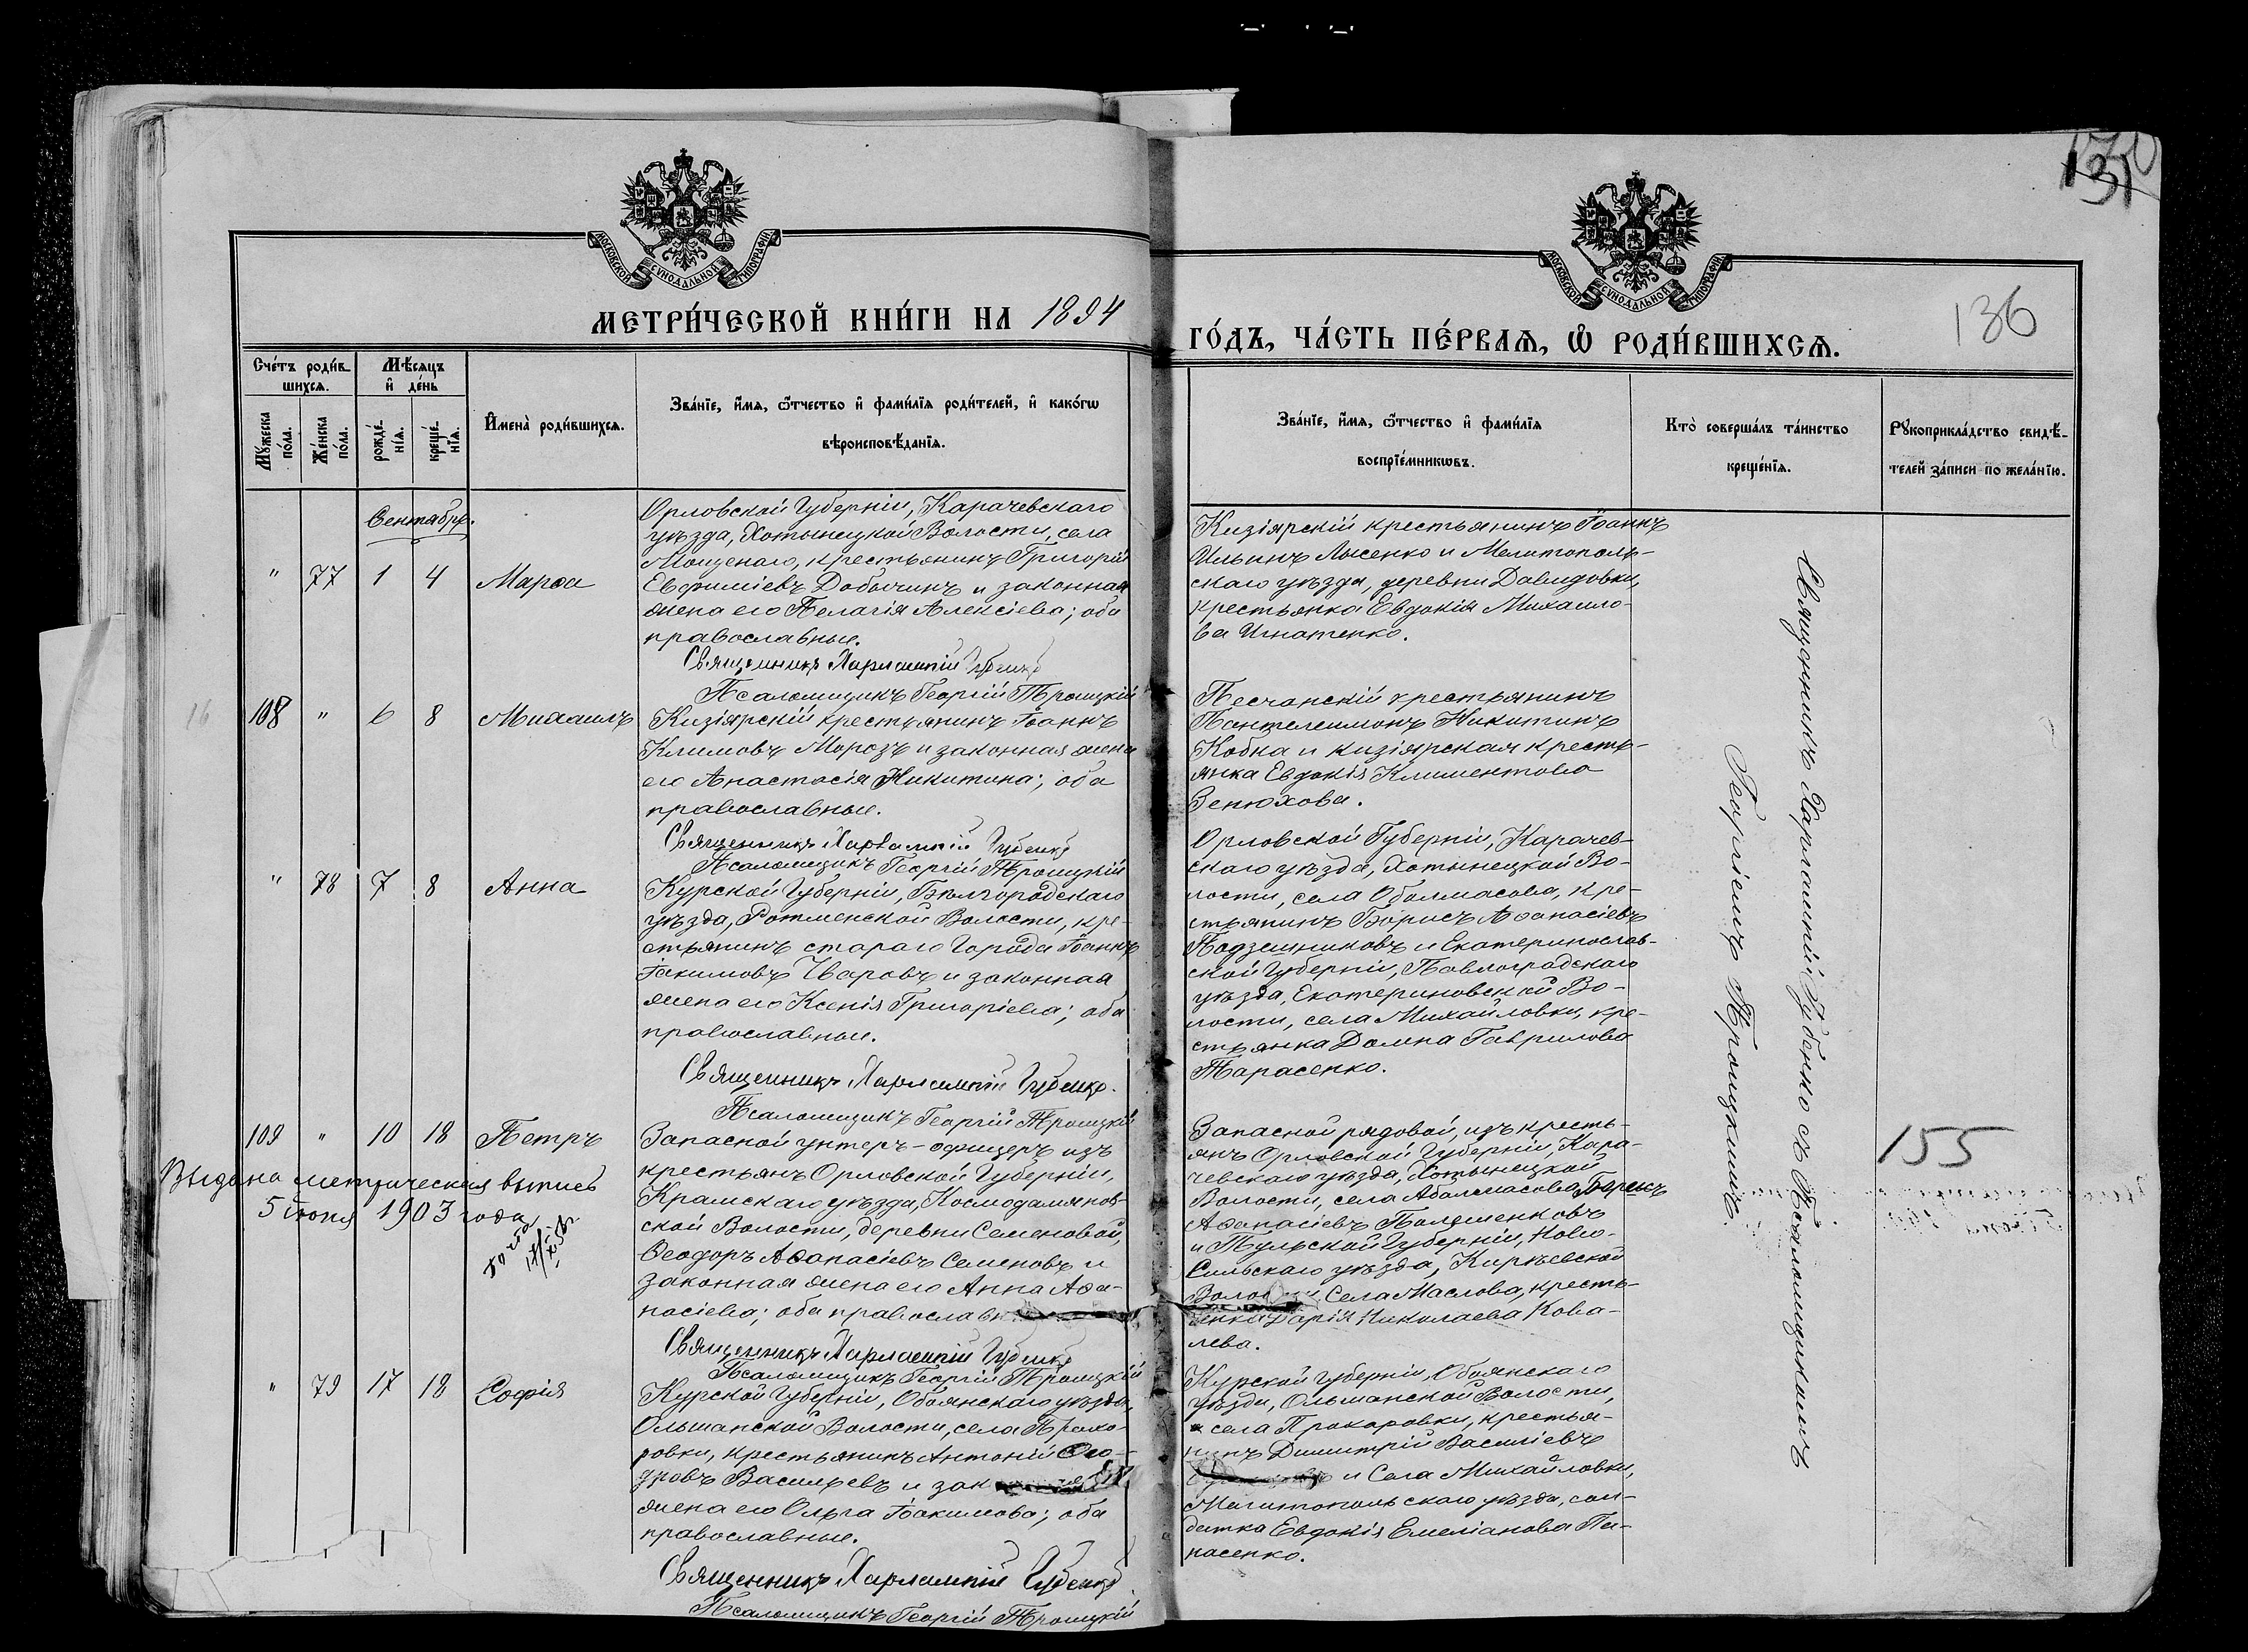 131
136
МОСКОВСКОЙ СѴНОДАЛЬНОЙ ТИПОГРАФІИ
МОСКОВСКОЙ СѴНОДАЛЬНОЙ ТИПОГРАФІИ
МЕТРИ́ЧЕСКОЙ КНИ́ГИ НА 1894
ГО́ДЪ, ЧА́СТЬ ПЕ́РВАѦ, Ѡ҆ РОДИ́ВШИХСѦ.
Сче́тъ роди́в-
шихсѧ.
Мѣ́сѧцъ
и҆ де́нь
Мꙋ́жеска
по́ла.
Же́нска
по́ла.
рожде́-
нїѧ.
креще́-
нїѧ.
И҆мена̀ роди́вшихсѧ.
Зва́нїе, и҆́мѧ, ѻ҆́тчество и҆ фами́лїѧ роди́телей, и҆ како́гѡ
вѣроисповѣ́данїѧ.
Зва́нїе, и҆́мѧ, ѻ҆́тчество и҆ фами́лїѧ
воспрїе́мникѡвъ.
Кто̀ соверша́лъ та́инство
креще́нїѧ.
Рꙋкоприкла́дство свидѣ́-
телей за́писи по жела́нїю.
Сентябрь.
" 77 1 4 Марѳа
Орловской Губерніи, Карачевскаго
уѣзда, Хотынецкой Волости, села
Мощенаго, крестьянинъ Григорій
Евфиміевъ Добычинъ и законная
жена его Пелагія Алексіева; оба
православные.
Священникъ Харлампій Губенко
Псаломщикъ Георгій Троицкій
Кизіярскій крестьянинъ Іоаннъ
Ильинъ Лысенко и Мелитополь-
скаго уѣзда, деревни Давидовки,
крестьянка Евдокія Михаило-
ва Игнатенко.
16
108 " 6 8 Михаилъ
Кизіярскій крестьянинъ Іоаннъ
Климовъ Морозъ и законная жена
его Анастасія Никитина; оба
православные.
Священникъ Харлампій Губенко
Псаломщикъ Георгій Троицкій
Песчанскій крестьянинъ
Пантелеимонъ Никитинъ
Кобка и кизіярская кресть-
янка Евдокія Климентова
Зенюхова.
" 78 7 8 Анна
Курской Губерніи, Бѣлгородскаго
уѣзда, Волости, кре-
стьянинъ стараго Города Іоаннъ
Іакимовъ Уваровъ и законная
жена его Ксенія Григоріева; оба
православные.
Священникъ Харлампій Губенко.
Псаломщикъ Георгій Троицкій
Орловской Губерніи, Карачев-
скаго уѣзда, Хотынецкой Во-
лости, села Оболмасова, кре-
стьянинъ Борисъ Аѳанасіевъ
и Екатеринослав-
ской Губерніи, Павлоградскаго
уѣзда, Екатериновской Во-
лости, села Михайловки, кре-
стьянка Домна Гаврилова
Тарасенко.
109 " 10 18 Петръ
Выдана метрическая выпись
5 Іюня 1903 года
Запасной унтеръ-офицеръ изъ
крестьянъ Орловской Губерніи,
Крамскаго уѣзда, Космодаміанов-
ской Волости, деревни Семеновой,
Ѳеодоръ Аѳанасіевъ Семеновъ и
законная жена его Анна Аѳа-
насіева; оба православн
Священникъ Харлампій Губенко
Псаломщикъ Георгій Троицкій
Запасной рядовой, изъ кресть-
янъ Орловской Губерніи, Кара-
чевскаго уѣзда, Хотынецкой
Волости, села Аболмасова Борисъ
Аѳанасіевъ
и Тульской Губерніи, Ново-
Сильскаго уѣзда, Кирѣевской
Волости Села Маслова, кресть-
янка Дарія Николаева Кова-
лева.
155
" 79 17 18 Софія
Курской Губерніи, Обоянскаго уѣзда,
Ольшанской Волости, села Прохо-
ровки, крестьянинъ Антоній Ѳео-
дровъ Васильевъ и зак
жена его Ольга Іоакимова; оба
православные.
Священникъ Харлампій Губенко
Псаломщикъ Георгій Троицкій
Курской Губерніи, Обоянскаго
уѣзда, Ольшанской Волости,
села Прохоровки, крестья-
нинъ Димитрій Василіевъ
и Села Михайловки,
Мелитопольскаго уѣзда, сол-
датка Евдокія Емеліанова Па-
насенко.
Священникъ Харлампій Губенко съ Псаломщикомъ
Георгіемъ Троицкимъ.